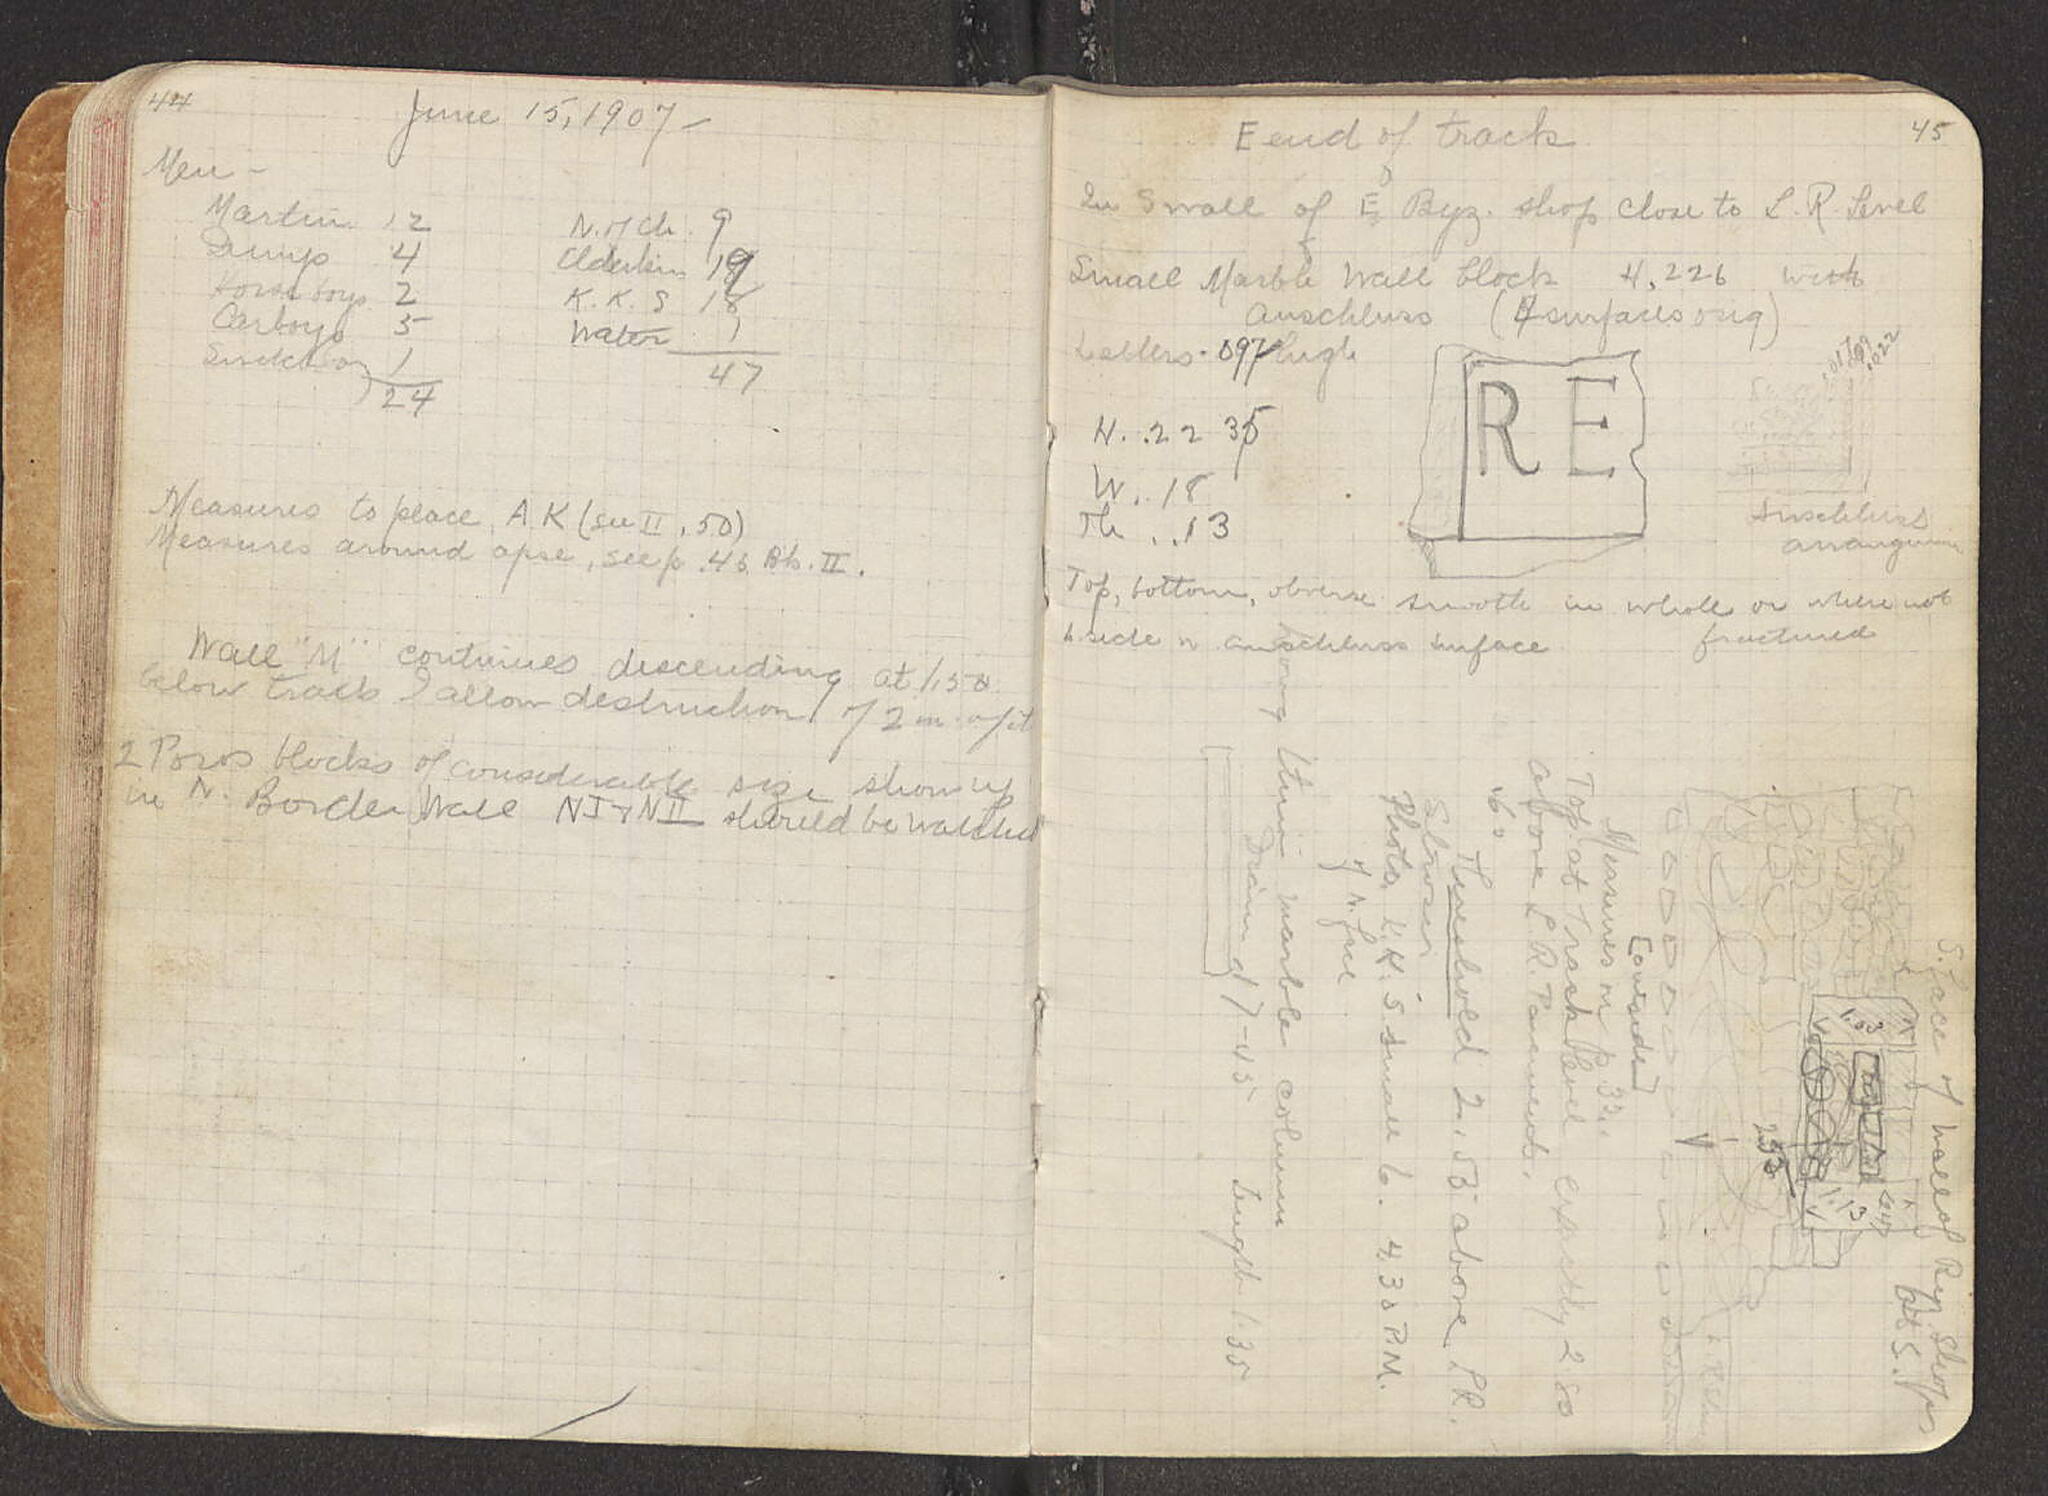 44
June 15, 1907 –
Men –
Martin 12
Dump 4
Horse boys 2
Carboys 5
1
24
N. of Ch. 9
Elderkin 19
K. K. S 18
Water 1
47
Measures to place A K (see II, 50)
Measures around apse, see p. 46 Bk. II.
Wall "M" continues descending at 1.50
below track I allow destruction of 2 m. of it
2 Poros blocks of considerable size show up
in N. Border Wall NI + NII should be watched
45
E end of track
In S wall of E Byz. shop close to L. R. Level
Small Marble Wall block H. 226 with
Anschluss (4 surfaces orig)
Letters .097 high
H. .22 35
W. .18
Th. .13
RE
.017
.022
Anschluss
Top, bottom, obverse smooth in whole or where not
fractured
h. side n anschluss surface
S. face of Wall of Byz. Shops
at S.
1.03
1.13
[outside]
Measures on p 32
Top at Track level exactly 2 80
above L. R. Pavement.
Threshold 2.53 above L.R.
between
Photo, K.K.'s small 6. 4.30 P.M.
of N. face
thin marble column
Drain at 7-45 Length 1.35